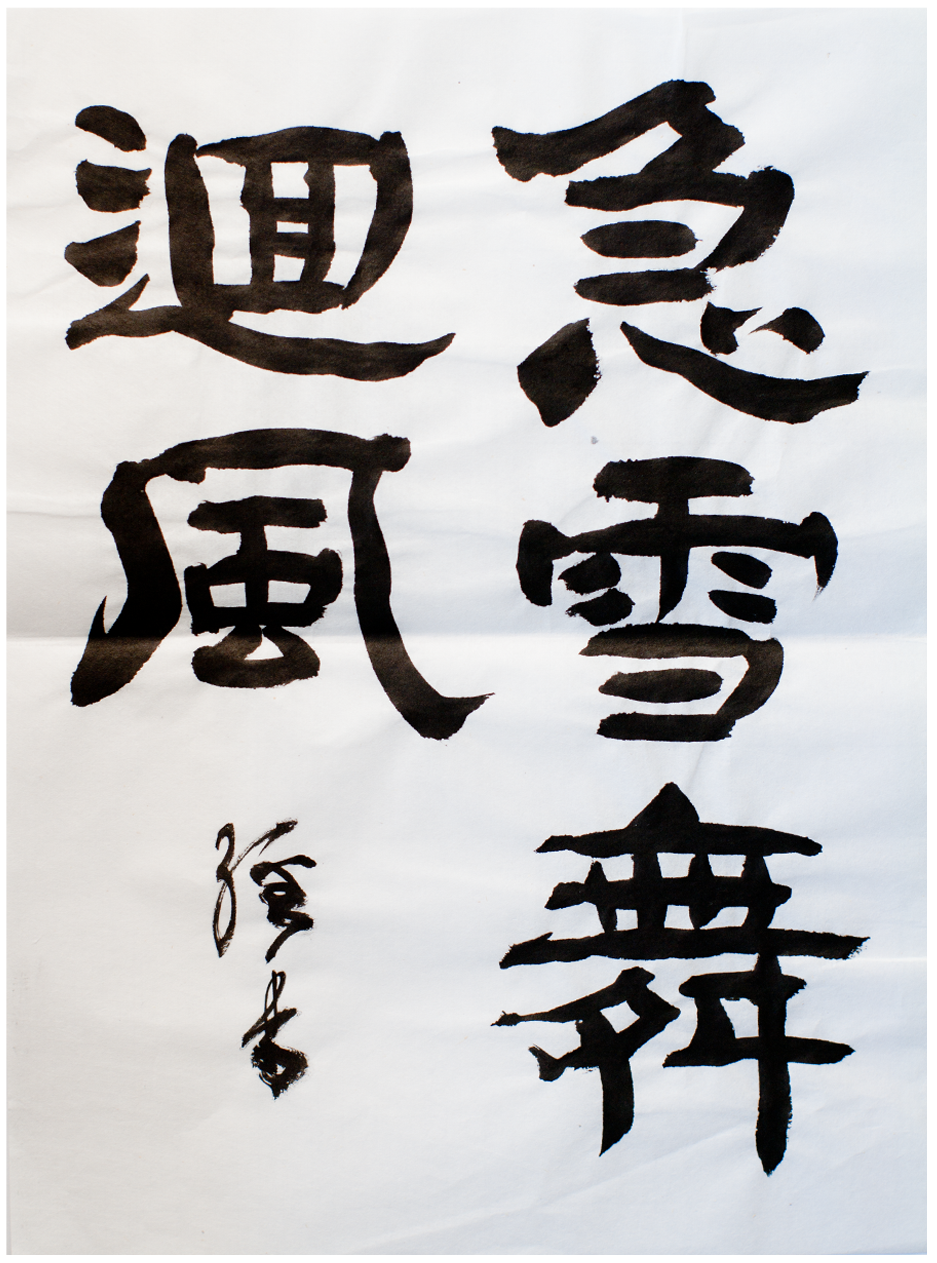 急雪舞
迴風
書